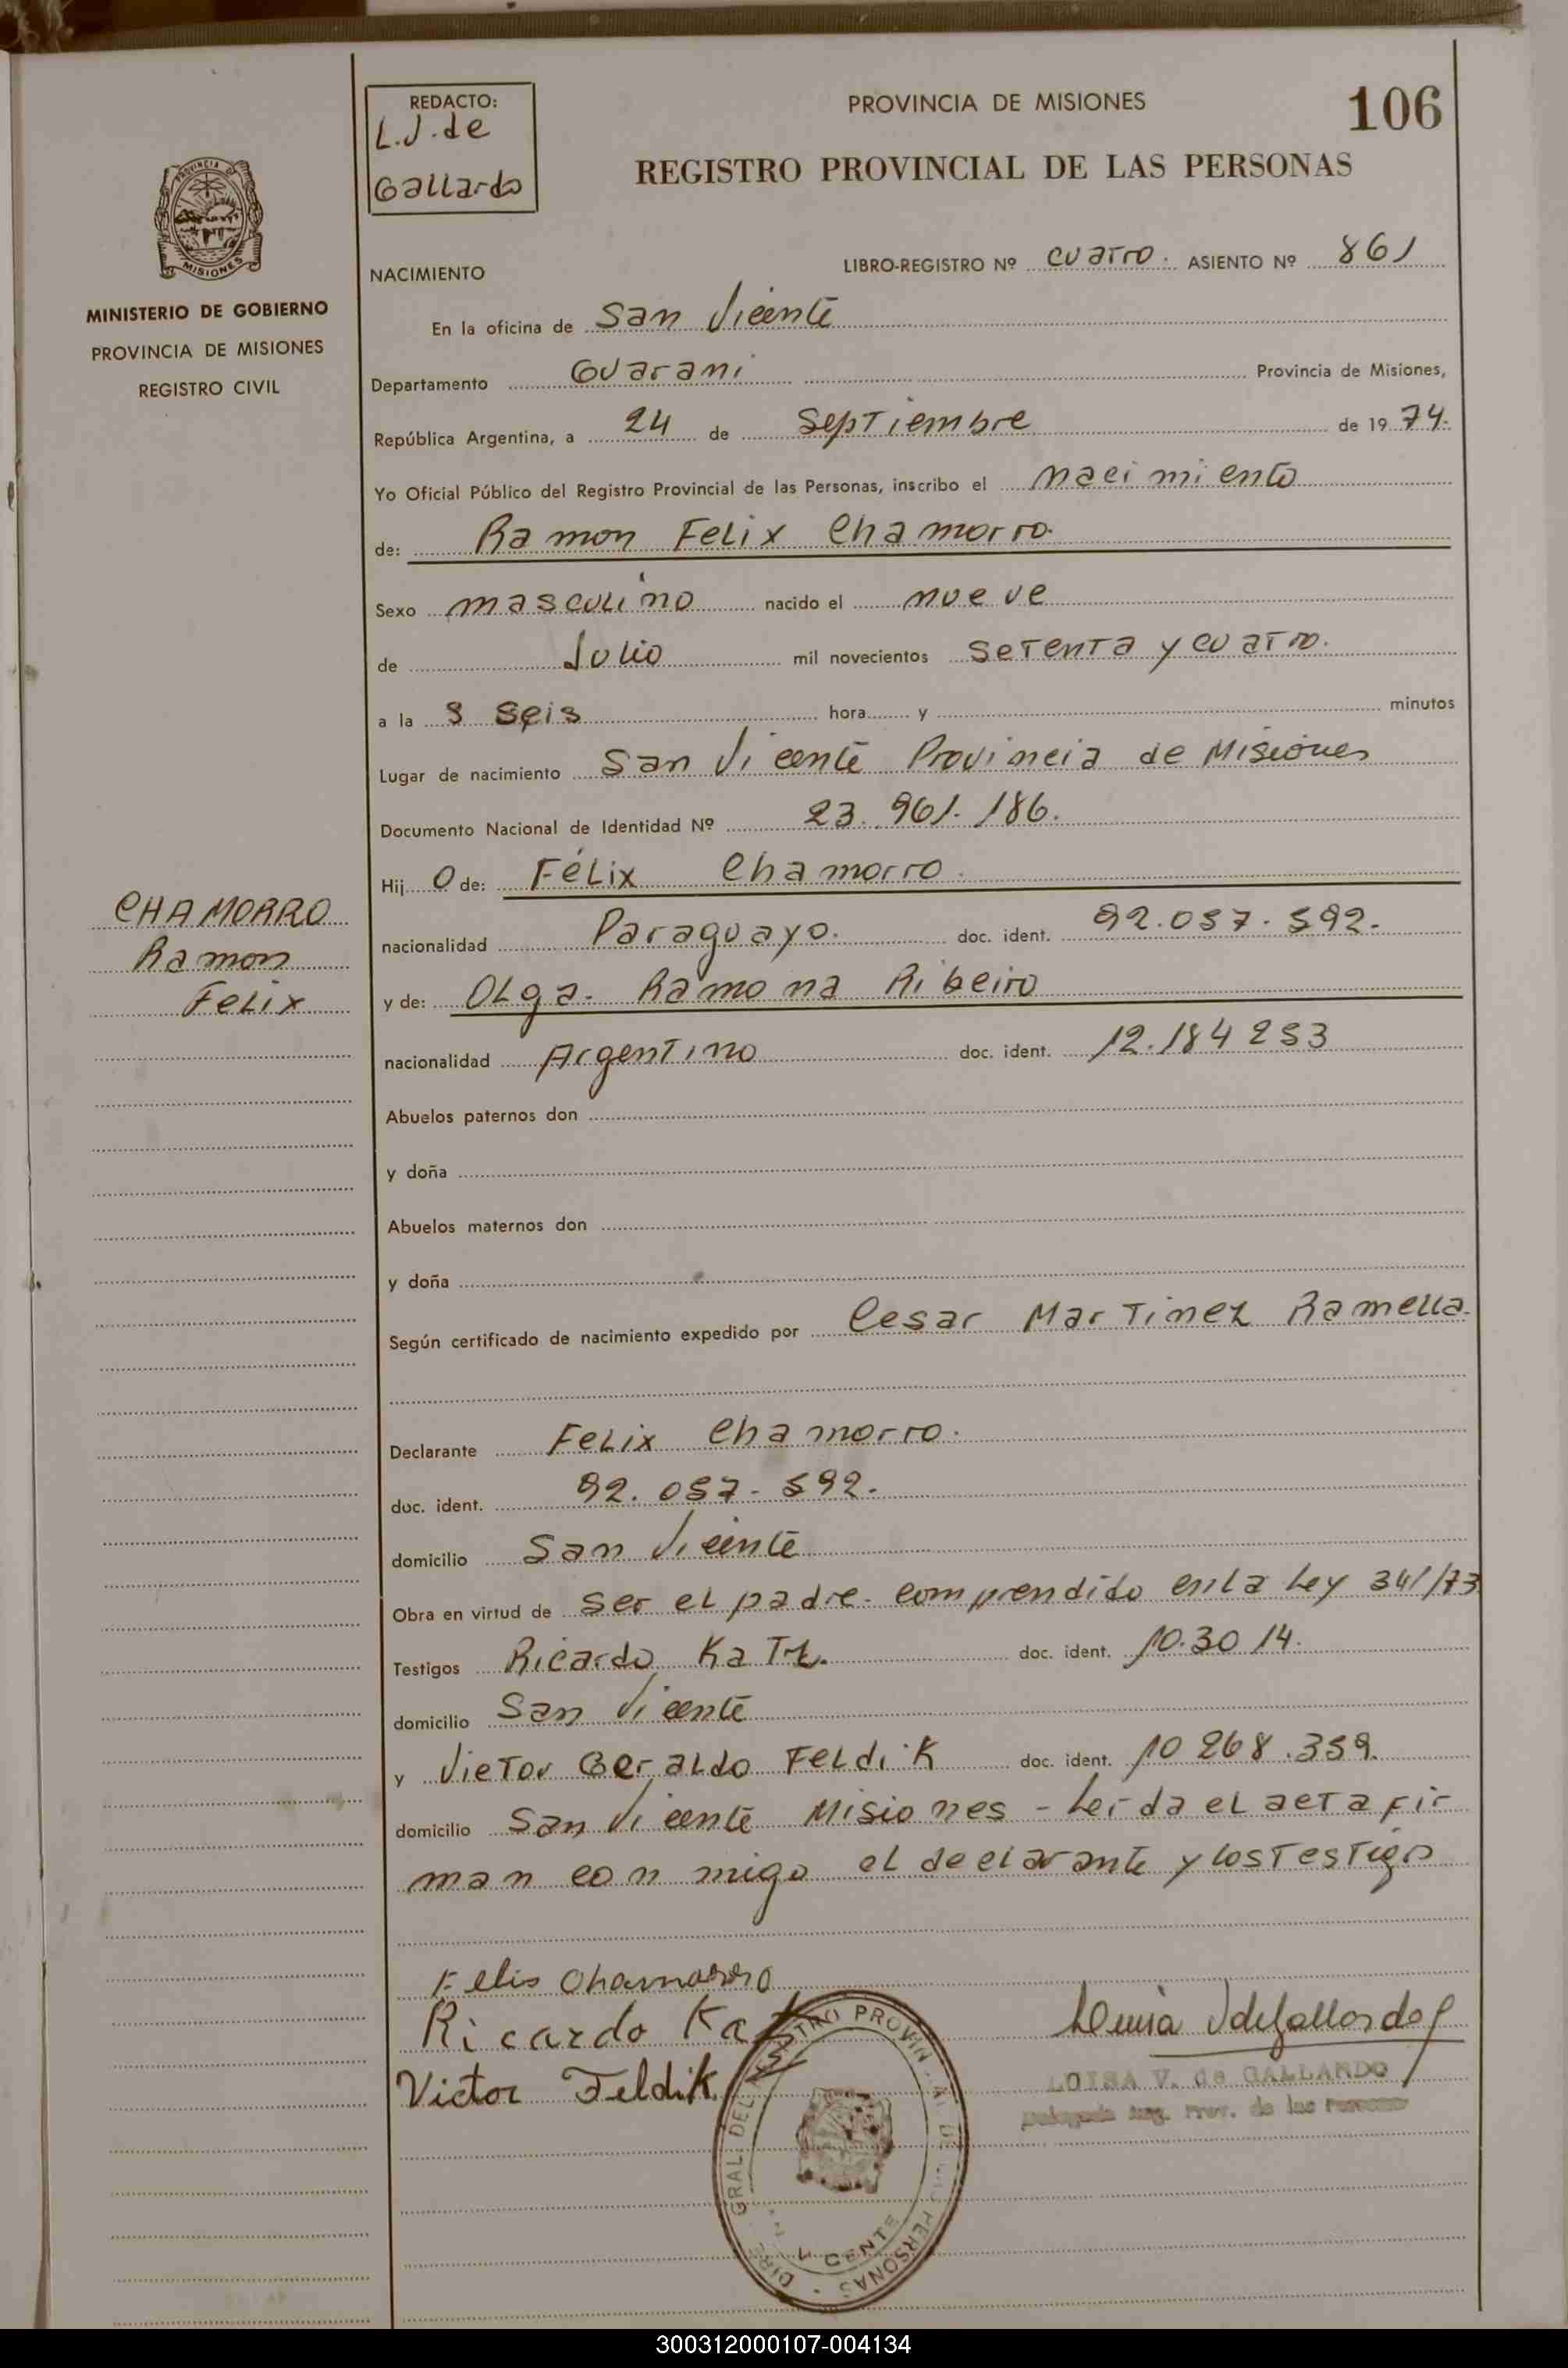 106
REDACTO:
L.J. de
Gallardo
PROVINCIA DE MISIONES
REGISTRO PROVINCIAL DE LAS PERSONAS
PROVINCIA DE MISIONES
MINISTERIO DE GOBIERNO
PROVINCIA DE MISIONES
REGISTRO CIVIL
NACIMIENTO
LIBRO-REGISTRO Nº cuatro. ASIENTO Nº 861
En la oficina de San Vicente
Departamento Guarani Provincia de Misiones,
República Argentina, a 24 de Septiembre de 1974.
Yo Oficial Público del Registro Provincial de las Personas, inscribo el nacimiento
de: Ramon Felix Chamorro.
Sexo masculino nacido el nueve
de Julio mil novecientos setenta y cuatro.
a la s seis hora y minutos
Lugar de nacimiento San Vicente Provincia de Misiones
Documento Nacional de Identidad Nº 23.961.186.
Hij o de: Félix Chamorro.
CHAMORRO
Ramon
Felix
nacionalidad Paraguayo. doc. ident. 92.057.592.
y de: Olga. Ramona Ribeiro
nacionalidad Argentino doc. ident. 12.184253
Abuelos paternos don
y doña
Abuelos maternos don
y doña
Según certificado de nacimiento expedido por Cesar Martinez Ramella.
Declarante Felix Chamorro.
doc. ident. 92.057-592.
domicilio San Vicente
Obra en virtud de ser el padre. comprendido en la Ley 341/73
Testigos Ricardo Katz. doc. ident. 10.30 14.
domicilio San Vicente
y Victor Geraldo Feldik doc. ident. 10 268.359.
domicilio San Vicente Misiones - Leída el acta fir
man con migo el declarante y los Testigos
Felis Chamorro
Ricardo Katz
Victor Feldik
LOISA V. de GALLARDO
Prov. de las Personas
DIRE GRAL. DEL REGISTRO PROVINCIAL DE LAS PERSONAS
SAN VICENTE
300312000107-004134